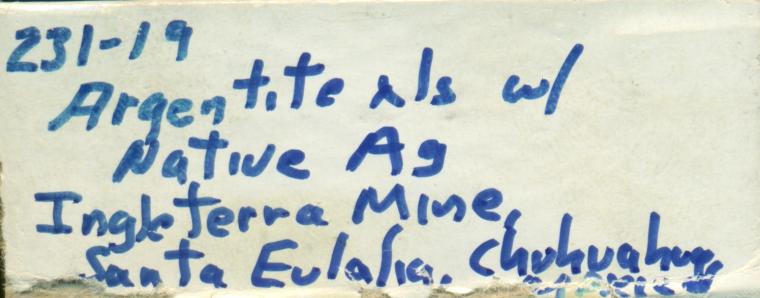 231-19
Argentite xls w/
Native Ag
Ingleterra Mine,
Santa Eulalia. Chuhuahua,